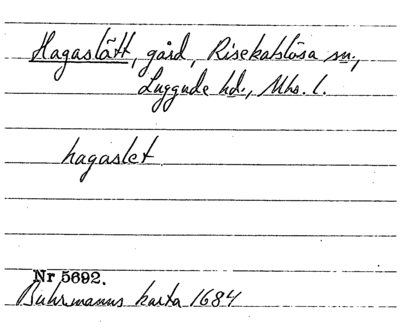 Hagaslätt, gård, Risekatslösa sn.,
Luggude hd., Mhs. l.
hagaslet
Nr 5692.
Buhrmanns karta 1684